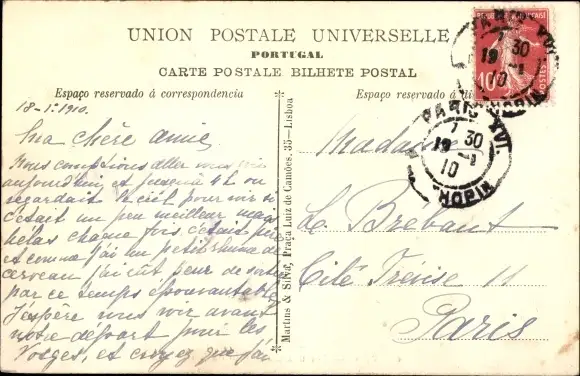 UNION POSTALE UNIVERSELLE
PORTUGAL
CARTE POSTALE BILHETE POSTAL
Espaço reservado á correspondencia
Espaço reservado á
18-1-1910.
Ma chère amie
Nous comptions aller vous voir
aujourd'hui et jusqu'à 4h on
regardait le ciel pour voir si
c'était un peu meilleur mais
hélas chaque fois c'était pis
et comme j'ai un petit rhume de
cerveau j'ai eût peur de sortir
par ce temps épouvantable
J'espère vous voir avant
votre départ pour les
Vosges, et croyez que j'ai
Martins & Silva, Praça Luiz de Camões, 35—Lisboa
Madame
Le Brebant
Cité Trévise 11
Paris
PARIS XVI
7 30
19 -1
10
CHOPIN
PARIS XVI
7 30
19 -1
10
CHOPIN
10
POSTES